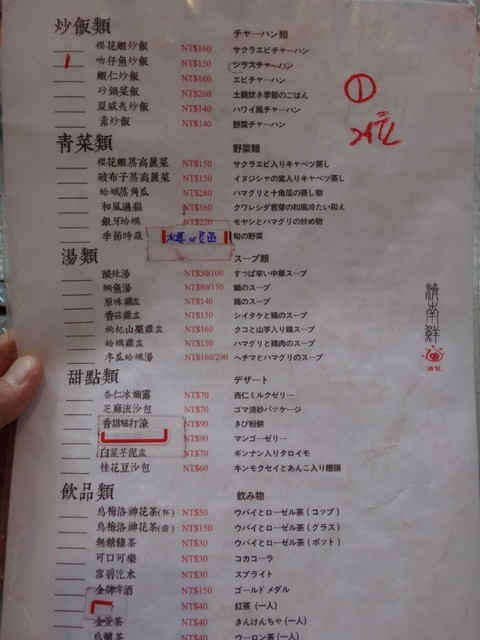 炒飯類 チャーハン類
櫻花蝦炒飯 NT$160 サクラエビチャーハン
1 吻仔魚炒飯 NT$150 シラスチャーハン
蝦仁炒飯 NT$160 エビチャーハン
砂鍋菜飯 NT$260 土鍋炊き季節のごはん
夏威夷炒飯 NT$140 ハワイ風チャーハン
素炒飯 NT$140 野菜チャーハン
①
青菜類 野菜類
櫻花蝦蒸高麗菜 NT$150 サクラエビ入りキャベツ蒸し
破布子蒸高麗菜 NT$150 イヌジシャの実入りキャベツ蒸し
蛤蠣蒸角瓜 NT$280 ハマグリと十角瓜の蒸し物
和風過貓 NT$160 クワレシダ若芽の和風冷たい和え
銀牙蛤蠣 NT$220 モヤシとハマグリの炒め物
季節時蔬 旬の野菜
湯類 スープ類
酸辣湯 NT$50/100 すっぱ辛い中華スープ
鯛魚湯 NT$80/150 鯛のスープ
原味雞盅 NT$140 鶏のスープ
香菇雞盅 NT$150 シイタケと鶏のスープ
枸杞山藥雞盅 NT$160 クコと山芋入り鶏スープ
蛤蠣雞盅 NT$150 ハマグリと鶏肉のスープ
冬瓜蛤蠣湯 NT$160/290 ヘチマとハマグリのスープ
濟南鮮
湯包
甜點類 デザート
杏仁冰嫺露 NT$70 杏仁ミルクゼリー
芝麻流沙包 NT$70 ゴマ流砂パッケージ
香甜軸打滾 NT$90 きび粉餅
NT$90 マンゴーゼリー
白菓芋泥盅 NT$70 ギンナン入りタロイモ
桂花豆沙包 NT$60 キンモクセイとあんこ入り饅頭
飲品類 飲み物
烏梅洛神花茶(杯) NT$50 ウバイとローゼル茶(コップ)
烏梅洛神花茶(壺) NT$150 ウバイとローゼル茶(グラス)
無糖綠茶 NT$30 ウバイとローゼル茶(ポット)
可口可樂 NT$30 コカコーラ
雪碧汽水 NT$30 スプライト
金牌啤酒 NT$150 ゴールドメダル
NT$40 紅茶(一人)
金萱茶 NT$40 きんけんちゃ(一人)
烏龍茶 NT$40 ウーロン茶(一人)